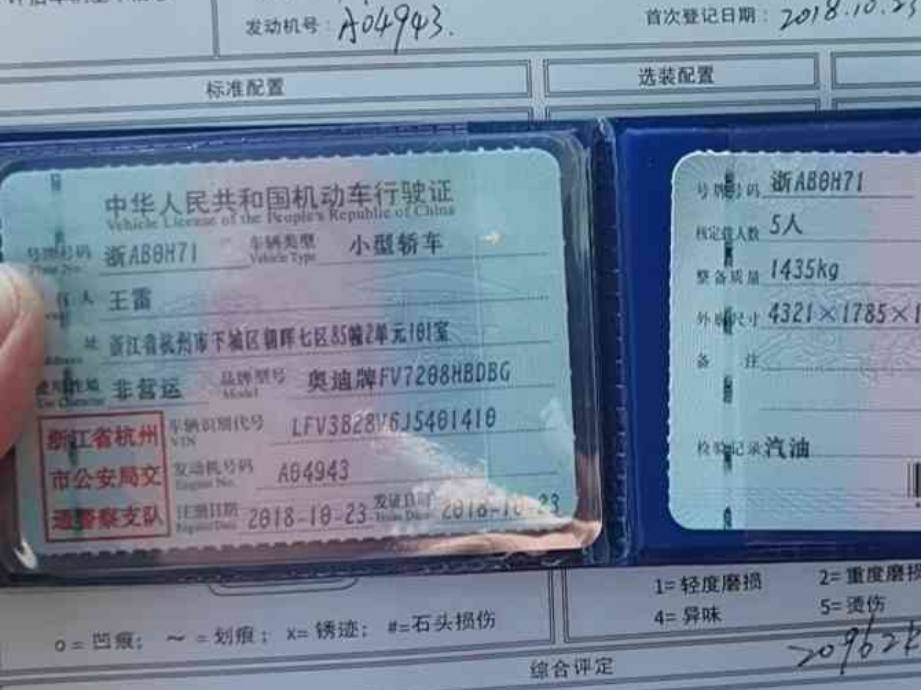 发动机号：A04943.
首次登记日期：2018.10.23
标准配置
选装配置
中华人民共和国机动车行驶证
Vehicle License of the People's Republic of China
号牌号码 浙AB0H71 车辆类型 小型轿车
Plate No. Vehicle Type
人 王雷
址 浙江省杭州市下城区朝晖七区85幢2单元101室
Address
使用性质 非营运 品牌型号 奥迪牌FV7208HBDBG
Use Character Model
浙江省杭州
市公安局交
通警察支队
车辆识别代号 LFV3B28V6J5401410
VIN
发动机号码 A04943
Engine No.
注册日期 2018-10-23 发证日期 2018-10-23
Register Date Issue Date
号牌号码 浙AB0H71
核定载人数 5人
整备质量 1435kg
外廓尺寸 4321×1785×1
备 注
检验记录 汽油
o=凹痕； ～=划痕； x=锈迹； #=石头损伤
1=轻度磨损 2=重度磨损
4=异味 5=烫伤
综合评定
20962k